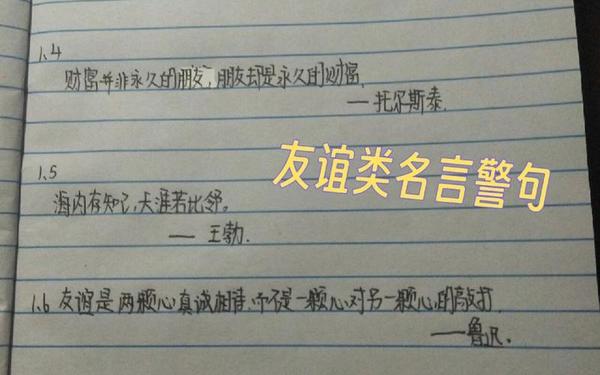 1.4
财富并非永久的朋友,朋友却是永久的财富.
—托尔斯泰.
友谊类名言警句
1.5
海内有知己,天涯若比邻。
— 王勃.
1.6 友谊是两颗心真诚相待,而不是一颗心对另一颗心的敲打
—鲁迅.